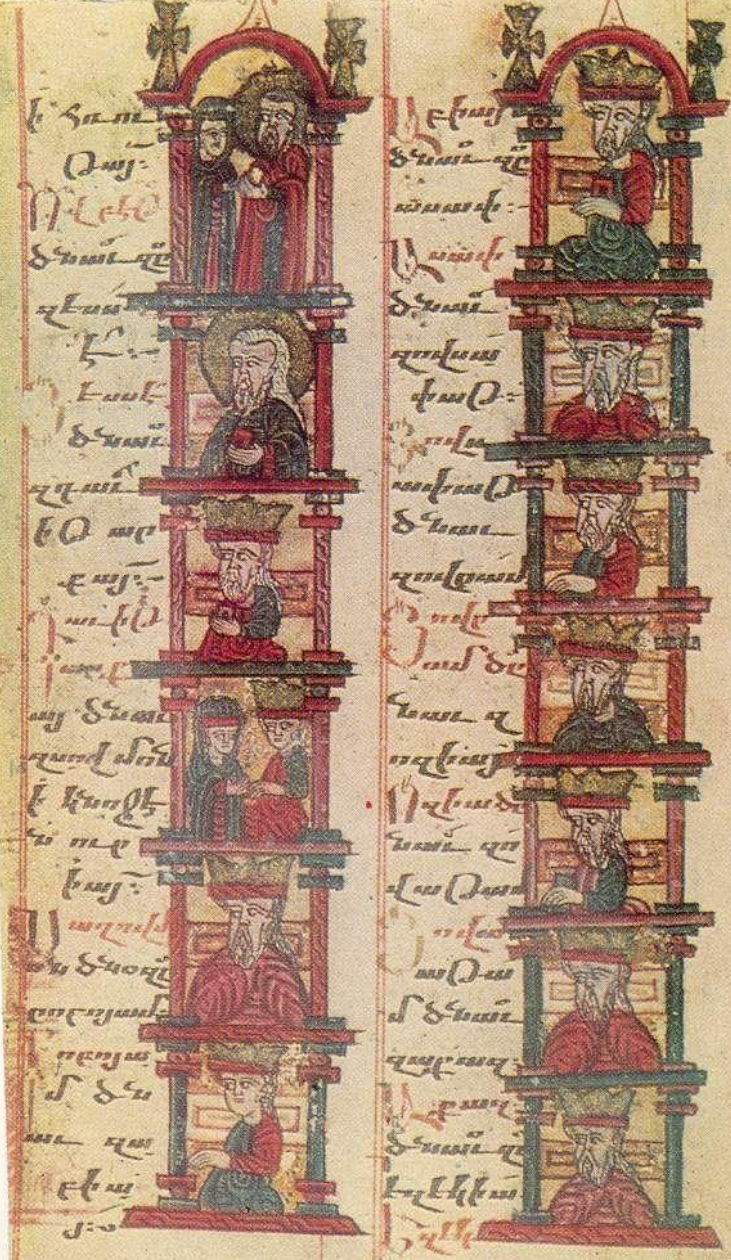 ի հռու
թայ։
ծնաւ զյ
Եսսէ
ծնաւ
զդաւ
իթ ար
քայ։
Դաւիթ
արք
այ ծնաւ
զսողմոն
ի կնոջէ
ն ուր
իայ։
ն ծնաւ զ
րոբովամ
Րոբովա
մ ծն
աւ զա
բիա
Աբիայ
ծնաւ զ
ասափ։
Ասափ
ծնաւ
զովսա
փաթ։
Յովս
ափաթ
ծնաւ
զովրամ
Յովր
ամ ծն
նաւ զ
ոզիայ
Ոզիաս ծ
նաւ զո
վաթամ
Յովա
աթա
մ ծնաւ
զաքազ։
Աքազ
ծնաւ զ
եզեկիա
Եզեկ